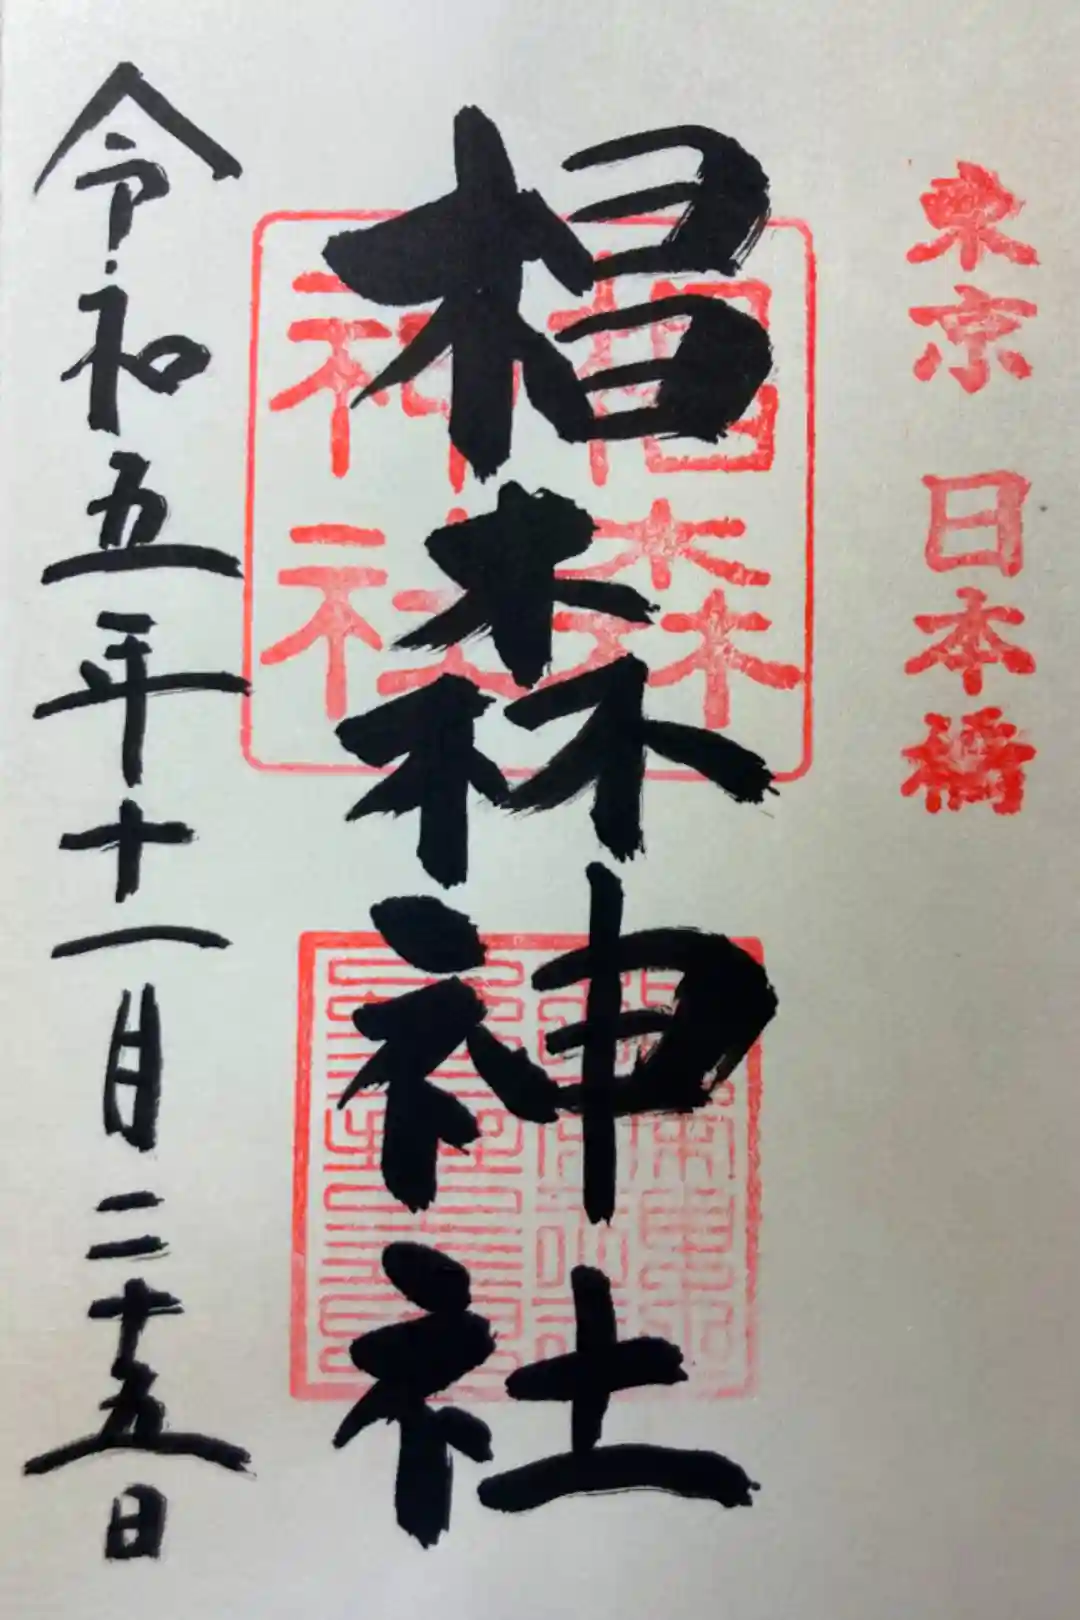 東京 日本橋
椙森神社
椙森
神社
令和五年十一月二十五日